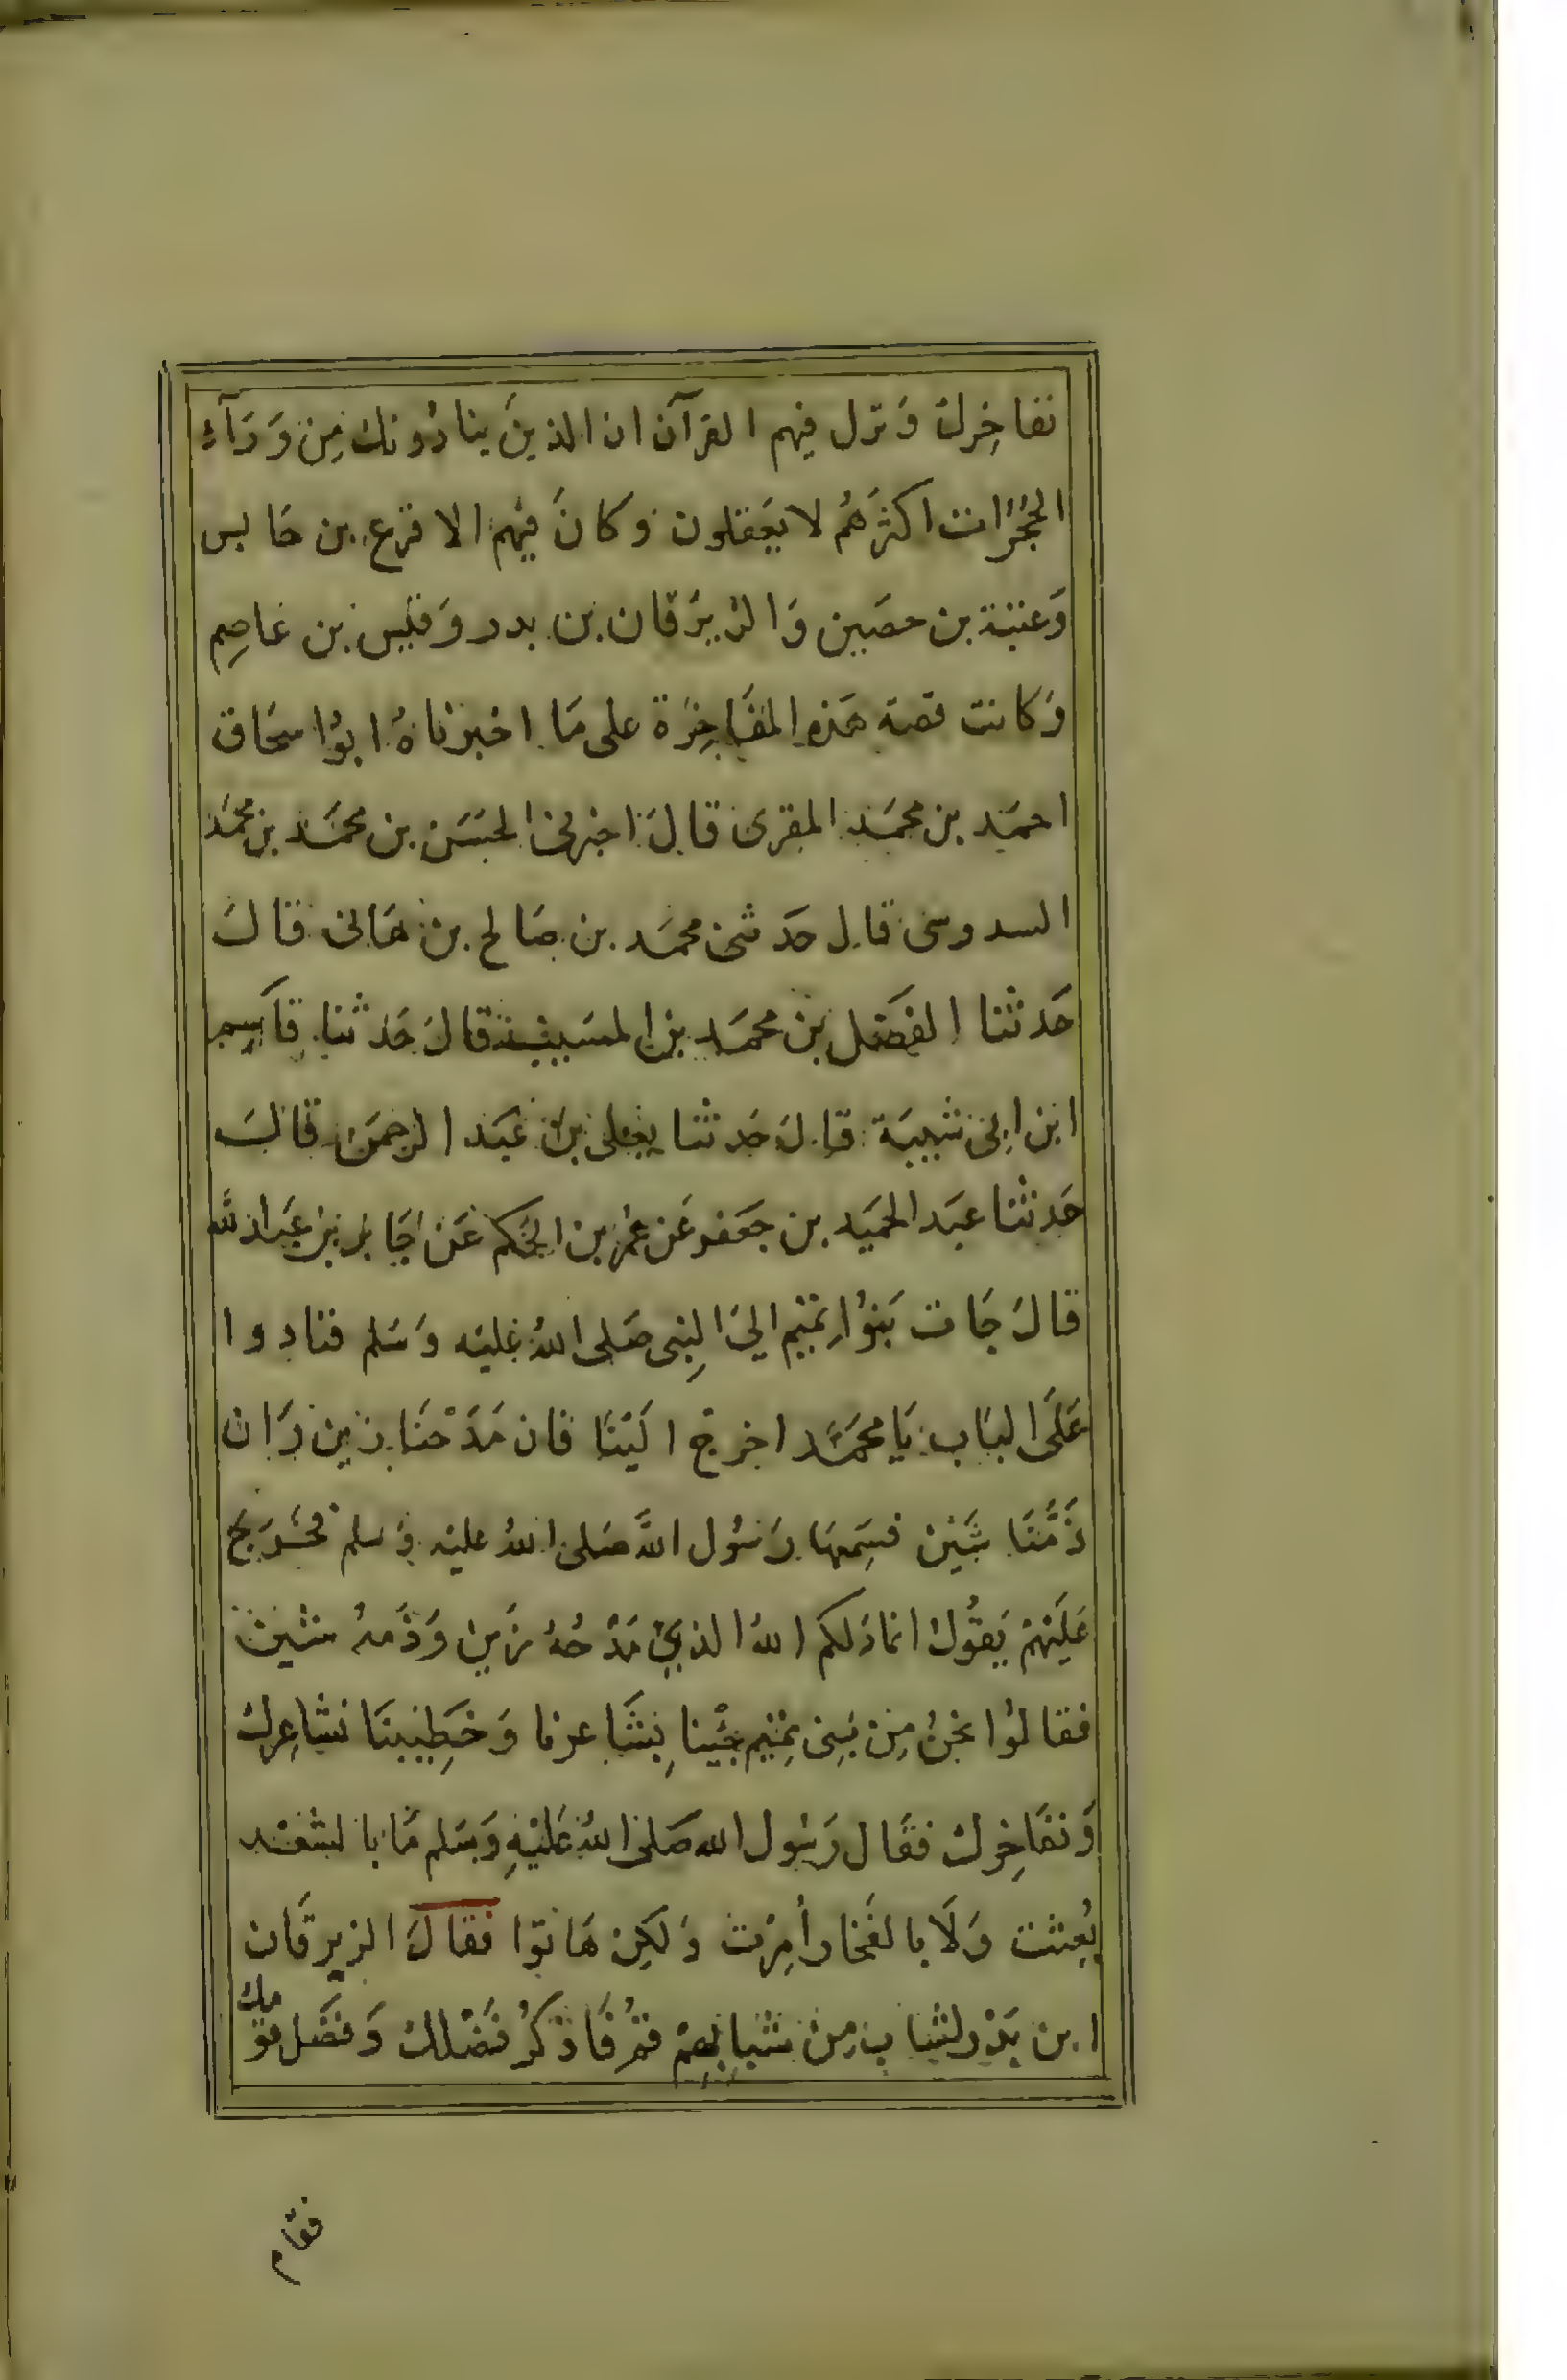 نفاخرك ونزل فيهم القرآن ان الذين ينادونك مِن وَرَآء
الحُجُرَات اكثرهُم لا يعقلون وكانَ فيهم الاقرع بن حَابس
وَعتبة بن حصَين وَالزبرقان بن بدر وَقيس بن عَاصِم
وَكانت قصة هَذه المفَاخِرَة على مَا اخبرنَاهُ ابوُا سحَاق
احمَد بن محمَد المقرى قالَ اخبرنى الحسَن بن محمَد بن محمَد
السدوسى قال حَدثنى محمَد بن صَالح بن هَانى قالَ
حَدثنا الفضَل بن محمَد بن المسَيب قالَ حَدثنا قاسِم
ابن ابى شيبَة قالَ حَدثنا يعَلى بن عَبَد الرحمَن قالَ
حَدثنا عبَد الحميَد بن جعَفر عَن عمُر بن الحَكم عَن جَابر بن عَبَد الله
قالَ جَات بَنوُا تمِيم الىَ النِبى صَلى اللهُ عَليَه وَسَلم فنادوا
عَلَى البَاب يَا محمَّد اخرج اليَنَا فان مَدَحْنَا زين وَان
ذَمَّنَا شَيْن فسَمِعهَا رَسُول اللهَ صَلى اللهُ عليْه وَسلم فخَرَجَ
عَلَيْهمْ يَقُولُ انماذَلكم اللهُ الذيْ مَدْحُهُ زَين وَذَمهُ شين
فقالوُا نحنُ مِن بَنِى تمِيم جِئْينا بِشَاعرنا وَخَطِيبنَا نشاعِرك
وَنفَاخِرك فقَال رَسُول الله صَلى اللهُ عَليْهِ وَسَلم مَا با لشعَر
بُعِثت وَلَا بالفَخار أمِرْت وَلَكِن هَاتوا فقالَ الزبرقَان
ابن بَدْر لشاب مِن شبابهِمْ قمْ فَاذكُر فضْلك وَفضَل قومك
فقام